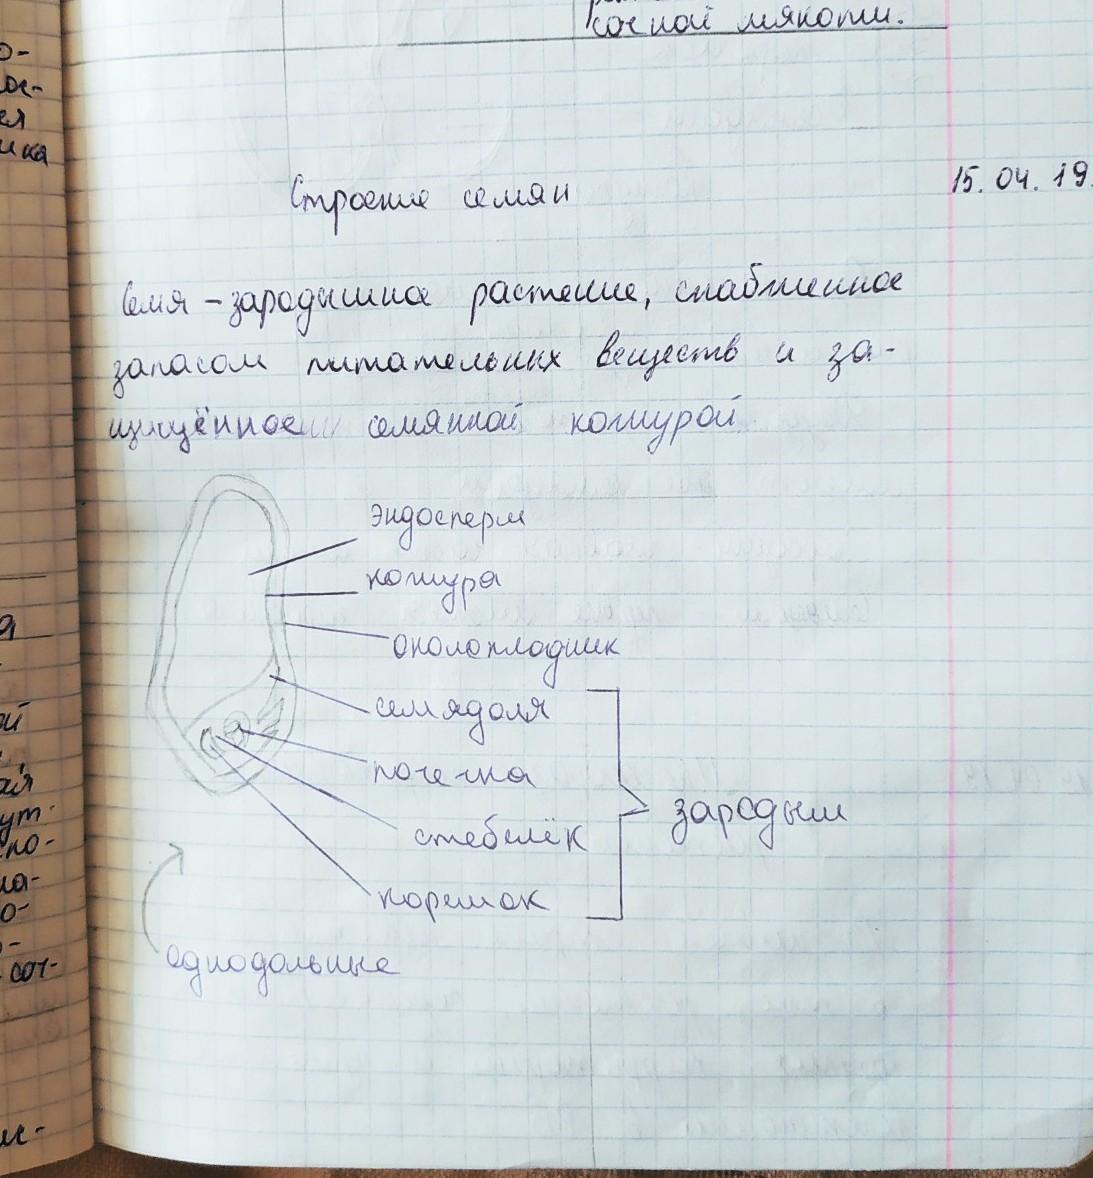 сочной мякоти.
Строение семян
15. 04. 19.
Семя – зародышное растение, снабженное
запасом питательных веществ и за-
щищённое семянной кожурой
эндосперм
кожура
околоплодник
семядоля
почечка
стебелёк
корешок
зародыш
однодольные